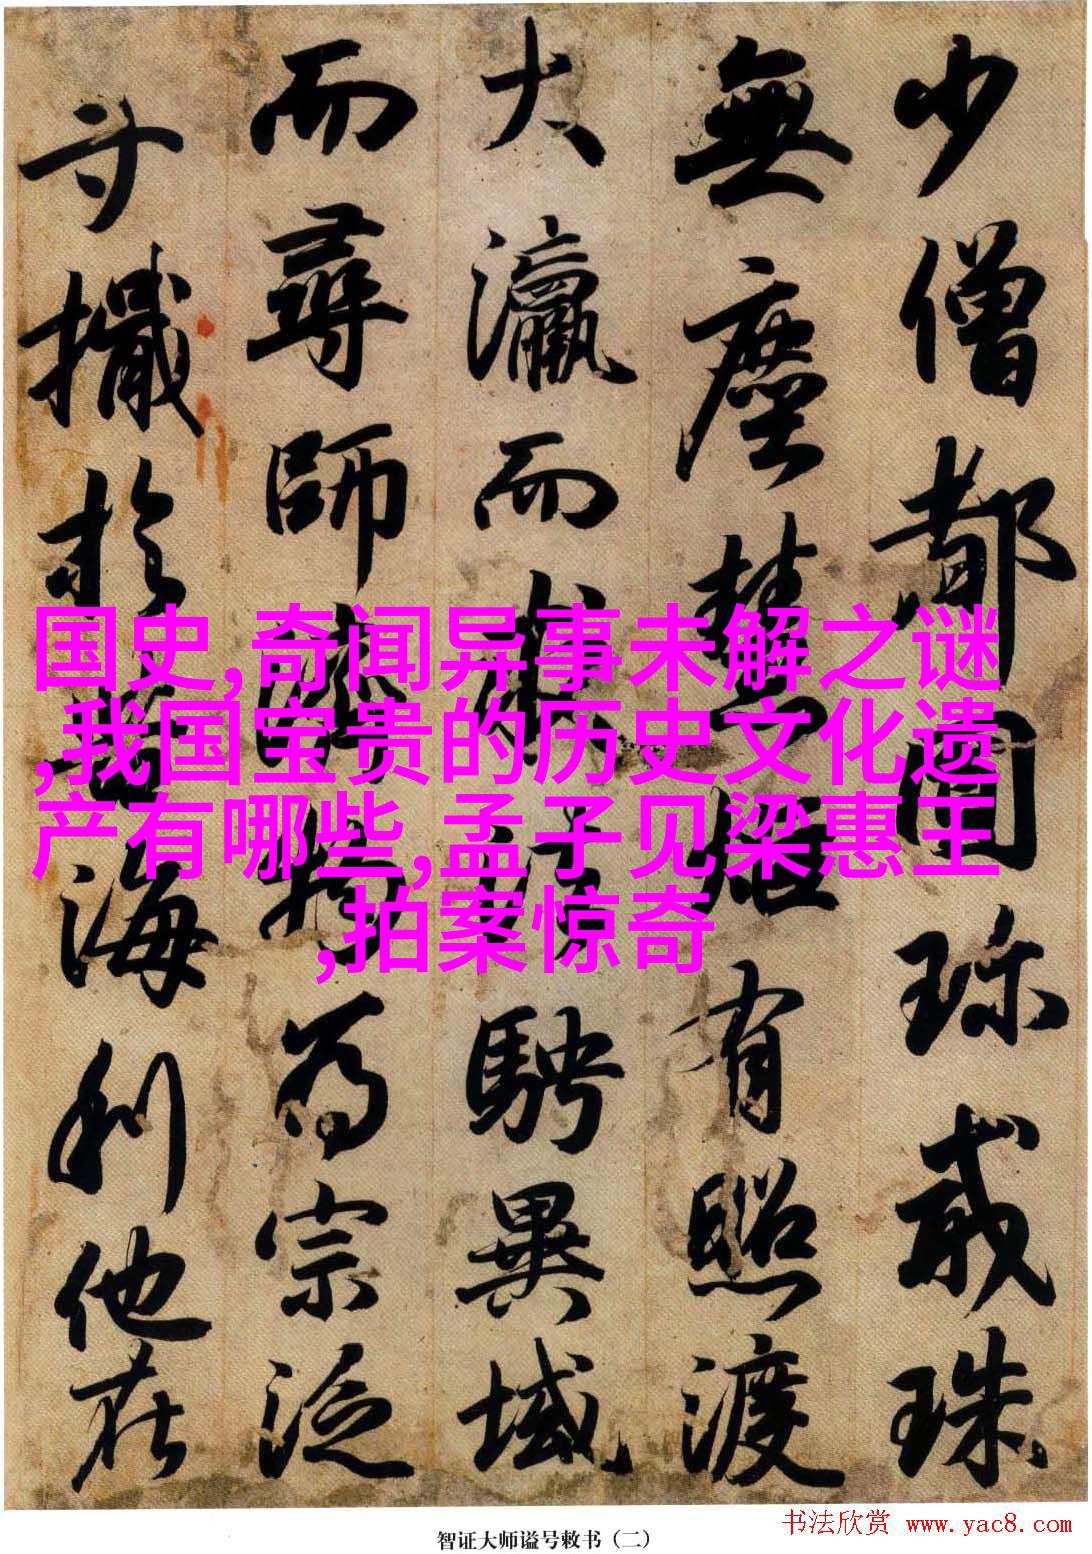 少僧都圓珍戒珠
無塵慧炬有照渡
大瀛而求法騁異域
而尋師為宗泛
寸檝於苦海利他在
国史,奇闻异事未解之谜
,我国宝贵的历史文化遗
产有哪些,孟子见梁惠王
,拍案惊奇
智证大师谥号敕书（二）
书法欣赏 www.yac8.com